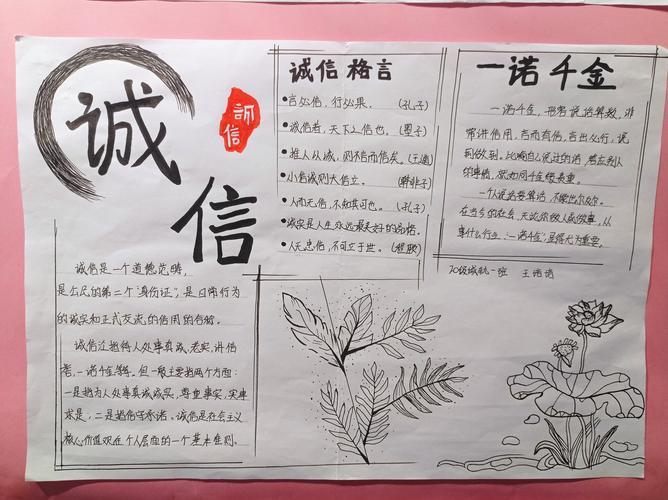 诚信
诚信
诚信是一个道德范畴,
是公民的第二个"身份证",是日常行为
的诚实和正式交流的信用的合称。
诚信泛指待人处事真诚、老实、讲信
者,一诺千金等。但一般主要指两个方面:
一是指为人处事真诚诚实,尊重事实,实事
求是;二是指信守承诺。诚信是社会主义
核心价值观在个人层面的一个基本准则。
诚信 格言
言必信,行必果。 (孔子)
诚信者,天下之结也。 (墨子)
推人以诚,则不言而信矣。(王通)
小信诚则大信立。 (韩非子)
人而无信,不知其可也。 (孔子)
诚实是人生永远最美好的品格。
人无忠信,不可立于世。 (程颐)
一诺千金
一诺千金,形容说话算数,非
常讲信用,言而有信,言出必行,说
到做到。比喻自己说过的话,答应别人
的事情,就如同千金般贵重。
一个人说话要算话,不能出尔反尔。
在当今的社会,无论你做人或做事,从
事什么行业,"一诺千金"显得尤为重要。
20级城轨一班